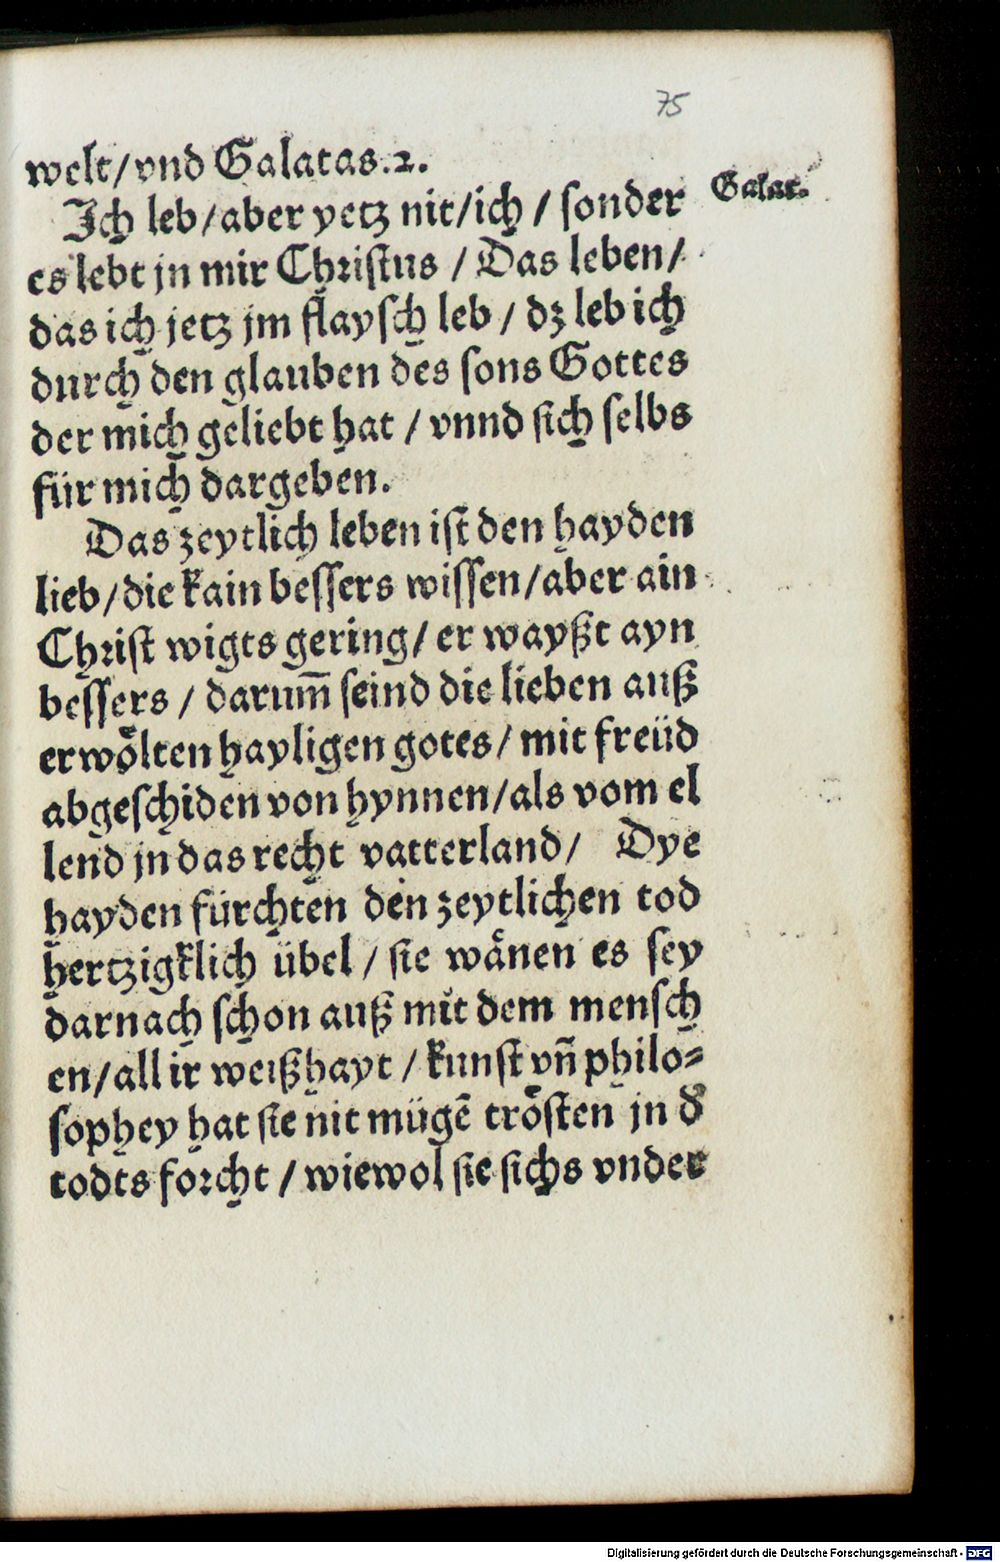 75
welt/vnd Galatas.2.
Galat.
Ich leb/aber yetz nit/ich/sonder
es lebt jn mir Christus/Das leben/
das ich jetz jm flaysch leb/dz leb ich
durch den glauben des sons Gottes
der mich geliebt hat/vnnd sich selbs
für mich dargeben.
Das zeytlich leben ist den hayden
lieb/die kain bessers wissen/aber ain
Christ wigts gering/er wayßt ayn
bessers/darum̃ seind die lieben auß
erwoͤlten hayligen gotes/mit freüd
abgeschiden von hynnen/als vom el
lend jn das recht vatterland/ Dye
hayden fürchten den zeytlichen tod
hertzigklich übel/sie waͤnen es sey
darnach schon auß mit dem mensch
en/all ir weißhayt/kunst vñ philo⸗
sophey hat sie nit mügẽ troͤsten jn d̕
todts forcht/wiewol sie sichs vnder
Digitalisierung gefördert durch die Deutsche Forschungsgemeinschaft - DFG